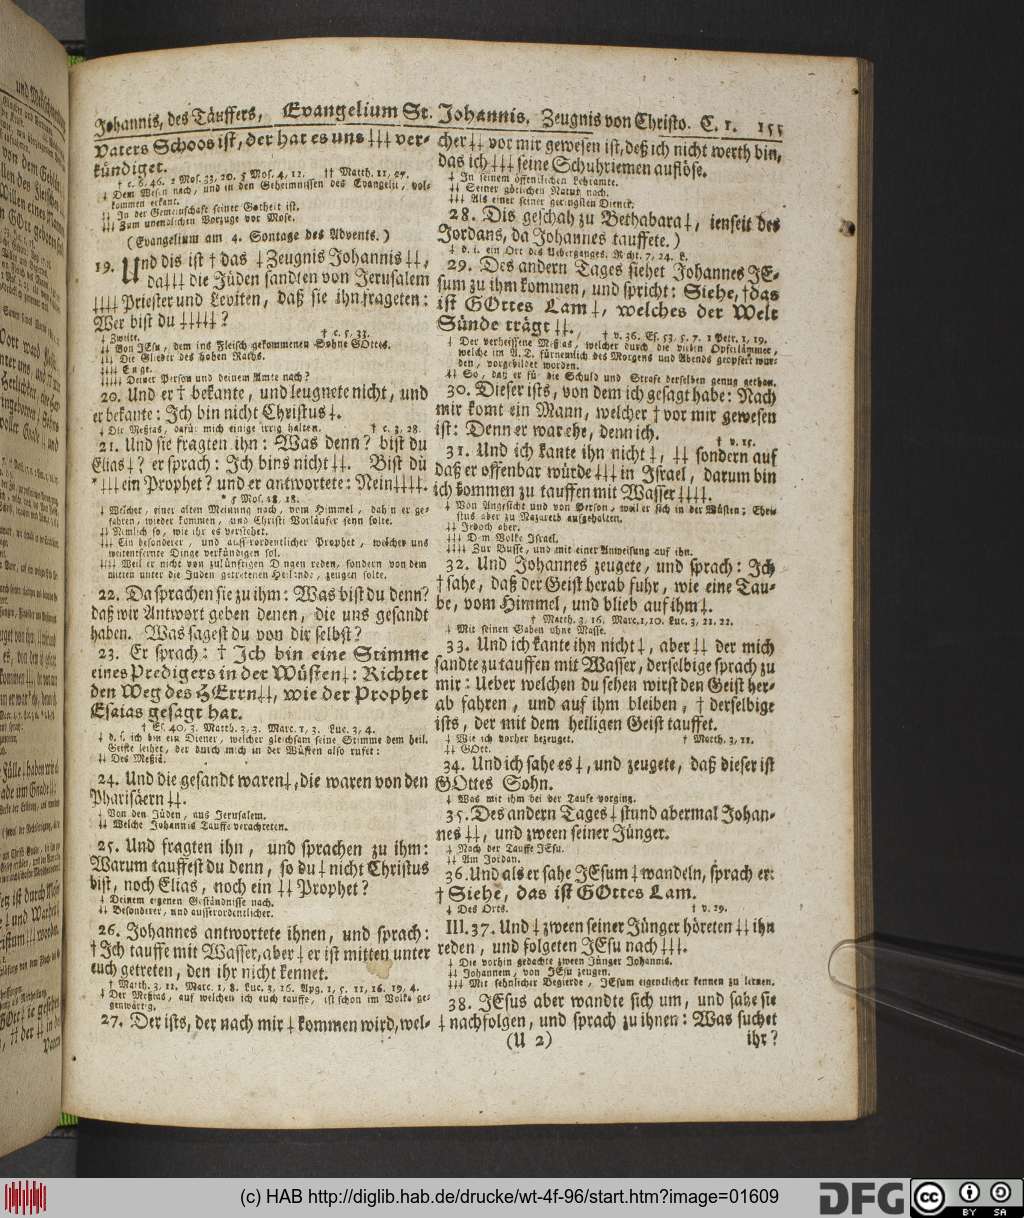 Johannis, des Täuffers, Evangelium St. Johannis. Zeugnis von Christo. C. 1. 155
Vaters Schoos ist, der hat es uns ⸸⸸⸸ ver-
kündiget.
† c. 6, 46. 2 Mos. 33, 20. 5 Mos. 4, 12. †† Matth. 11, 27.
⸸ Dem Wesen nach, und in den Geheimnissen des Evangelii, vol-
kommen erkant.
⸸⸸ In der Gemeinschaft seiner Gotheit ist.
⸸⸸⸸ Zum unendlichen Vorzuge vor Mose.
(Evangelium am 4. Sontage des Advents.)
19. Und dis ist † das ⸸ Zeugnis Johannis ⸸⸸,
da ⸸⸸⸸ die Jüden sandten von Jerusalem
⸸⸸⸸⸸ Priester und Leviten, daß sie ihn frageten:
Wer bist du ⸸⸸⸸⸸⸸?
⸸ Zweite. † c. 5, 33.
⸸⸸ Von JEsu, dem ins Fleisch gekommenen Sohne GOttes.
⸸⸸⸸ Die Glieder des hohen Raths.
⸸⸸⸸⸸ Einige.
⸸⸸⸸⸸⸸ Deiner Person und deinem Amte nach?
20. Und er † bekante, und leugnete nicht, und
er bekante: Ich bin nicht Christus ⸸.
⸸ Der Meßias, dafür mich einige irrig halten. † c. 3, 28.
21. Und sie fragten ihn: Was denn? bist du
Elias ⸸? er sprach: Ich bins nicht ⸸⸸. Bist du
* ⸸⸸⸸ ein Prophet? und er antwortete: Nein ⸸⸸⸸⸸.
* 5 Mos. 18, 18.
⸸ Welcher, einer alten Meinung nach, vom Himmel, dahin er ge-
fahren, wieder kommen, und Christi Vorläufer seyn solte.
⸸⸸ Nemlich so, wie ihr es verstehet.
⸸⸸⸸ Ein besonderer, und ausserordentlicher Prophet, welcher uns
weitentfernte Dinge verkündigen sol.
⸸⸸⸸⸸ Weil er nicht von zukünftigen Dingen reden, sondern von dem
mitten unter die Juden getretenen Heilande, zeugen solte.
22. Da sprachen sie zu ihm: Was bist du denn?
daß wir Antwort geben denen, die uns gesandt
haben. Was sagest du von dir selbst?
23. Er sprach: † Ich bin eine Stimme
eines Predigers in der Wüsten ⸸: Richtet
den Weg des HErrn ⸸⸸, wie der Prophet
Esaias gesagt hat.
† Es. 40, 3. Matth. 3, 3. Marc. 1, 3. Luc. 3, 4.
⸸ d. i. ich bin ein Diener, welcher gleichsam seine Stimme dem heil.
Geiste leihet, der durch mich in der Wüsten also rufet:
⸸⸸ Des Meßiä.
24. Und die gesandt waren ⸸, die waren von den
Pharisäern ⸸⸸.
⸸ Von den Jüden, aus Jerusalem.
⸸⸸ Welche Johannis Tauffe verachteten.
25. Und fragten ihn, und sprachen zu ihm:
Warum tauffest du denn, so du ⸸ nicht Christus
bist, noch Elias, noch ein ⸸⸸ Prophet?
⸸ Deinem eigenen Geständnisse nach.
⸸⸸ Besonderer, und ausserordentlicher.
26. Johannes antwortete ihnen, und sprach:
† Ich tauffe mit Wasser, aber ⸸ er ist mitten unter
euch getreten, den ihr nicht kennet.
† Matth. 3, 11. Marc. 1, 8. Luc. 3, 16. Apg. 1, 5. 11, 16. 19, 4.
⸸ Der Meßias, auf welchen ich euch tauffe, ist schon im Volke ge-
genwärtig.
27. Der ists, der nach mir ⸸ kommen wird, wel-
cher ⸸⸸ vor mir gewesen ist, deß ich nicht werth bin,
das ich ⸸⸸⸸ seine Schuhriemen auflöse.
⸸ In seinem öffentlichen Lehramte.
⸸⸸ Seiner götlichen Natur nach.
⸸⸸⸸ Als einer seiner geringsten Diener.
28. Dis geschah zu Bethabara ⸸, jenseit des
Jordans, da Johannes tauffete.)
⸸ d. i. ein Ort des Ueberganges. Richt. 7, 24.
29. Des andern Tages siehet Johannes JE-
sum zu ihm kommen, und spricht: Siehe, † das
ist GOttes Lam ⸸, welches der Welt
Sünde trägt ⸸⸸.
† v. 36. Es. 53, 5. 7. 1 Petr. 1, 19.
⸸ Der verheissene Meßias, welcher durch die vielen Opferlämmer,
welche im A. T. fürnemlich des Morgens und Abends geopfert wur-
den, vorgebildet worden.
⸸⸸ So, daß er für die Schuld und Strafe derselben genug gethan.
30. Dieser ists, von dem ich gesagt habe: Nach
mir komt ein Mann, welcher † vor mir gewesen
ist: Denn er war ehe, denn ich.
† v. 15.
31. Und ich kante ihn nicht ⸸, ⸸⸸ sondern auf
daß er offenbar würde ⸸⸸⸸ in Israel, darum bin
ich kommen zu tauffen mit Wasser ⸸⸸⸸⸸.
⸸ Von Angesicht und von Person, weil er sich in der Wüsten; Chri-
stus aber zu Nazareth aufgehalten.
⸸⸸ Jedoch aber.
⸸⸸⸸ Dem Volke Israel.
⸸⸸⸸⸸ Zur Busse, und mit einer Anweisung auf ihn.
32. Und Johannes zeugete, und sprach: Ich
† sahe, daß der Geist herab fuhr, wie eine Tau-
be, vom Himmel, und blieb auf ihm ⸸.
† Matth. 3, 16. Marc. 1, 10. Luc. 3, 21. 22.
⸸ Mit seinen Gaben ohne Masse.
33. Und ich kante ihn nicht ⸸, aber ⸸⸸ der mich
sandte zu tauffen mit Wasser, derselbige sprach zu
mir: Ueber welchen du sehen wirst den Geist her-
ab fahren, und auf ihm bleiben, † derselbige
ists, der mit dem heiligen Geist tauffet.
⸸ Wie ich vorher bezeuget. † Matth. 3, 11.
⸸⸸ GOtt.
34. Und ich sahe es ⸸, und zeugete, daß dieser ist
GOttes Sohn.
⸸ Was mit ihm bei der Taufe vorging.
35. Des andern Tages ⸸ stund abermal Johan-
nes ⸸⸸, und zween seiner Jünger.
⸸ Nach der Tauffe JEsu.
⸸⸸ Am Jordan.
36. Und als er sahe JEsum ⸸ wandeln, sprach er:
† Siehe, das ist GOttes Lam.
⸸ Des Orts. † v. 29.
III. 37. Und ⸸ zween seiner Jünger höreten ⸸⸸ ihn
reden, und folgeten JEsu nach ⸸⸸⸸.
⸸ Die vorhin gedachte zween Jünger Johannis.
⸸⸸ Johannem, von JEsu zeugen.
⸸⸸⸸ Mit sehnlicher Begierde, JEsum eigentlicher kennen zu lernen.
38. JEsus aber wandte sich um, und sahe sie
⸸ nachfolgen, und sprach zu ihnen: Was suchet
(U 2) ihr?
(c) HAB http://diglib.hab.de/drucke/wt-4f-96/start.htm?image=01609
DFG
cc BY SA